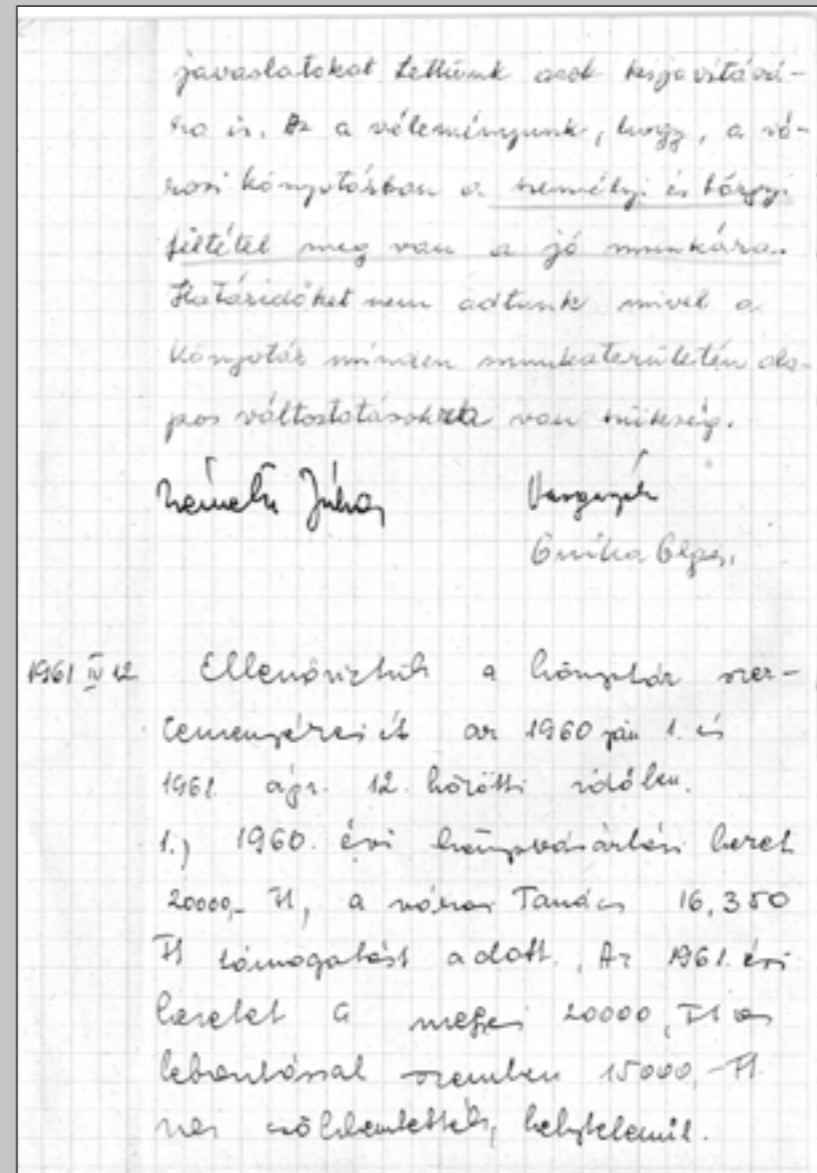 javaslatokat tettünk azok kijavításá-
ra is. Az a véleményünk, hogy, a vá-
rosi könyvtárban a személyi és tárgyi
feltétel meg van a jó munkára.
Határidőket nem adtunk mivel a
könyvtár minden munkaterületén ala-
pos változtatásokra van szükség.
Németh
1961 IV 12 Ellenőriztük a könyvtár szer-
zeményezését az 1960 jan 1. és
1961. ápr. 12. közötti időben.
1.) 1960. évi könyvvásárlási keret
20000,- Ft, a városi Tanács 16,350
Ft támogatást adott. Az 1961. évi
keretet a megyei 20000, Ft os
lebontással szemben 15000,- Ft
ra csökkentették, helytelenül.